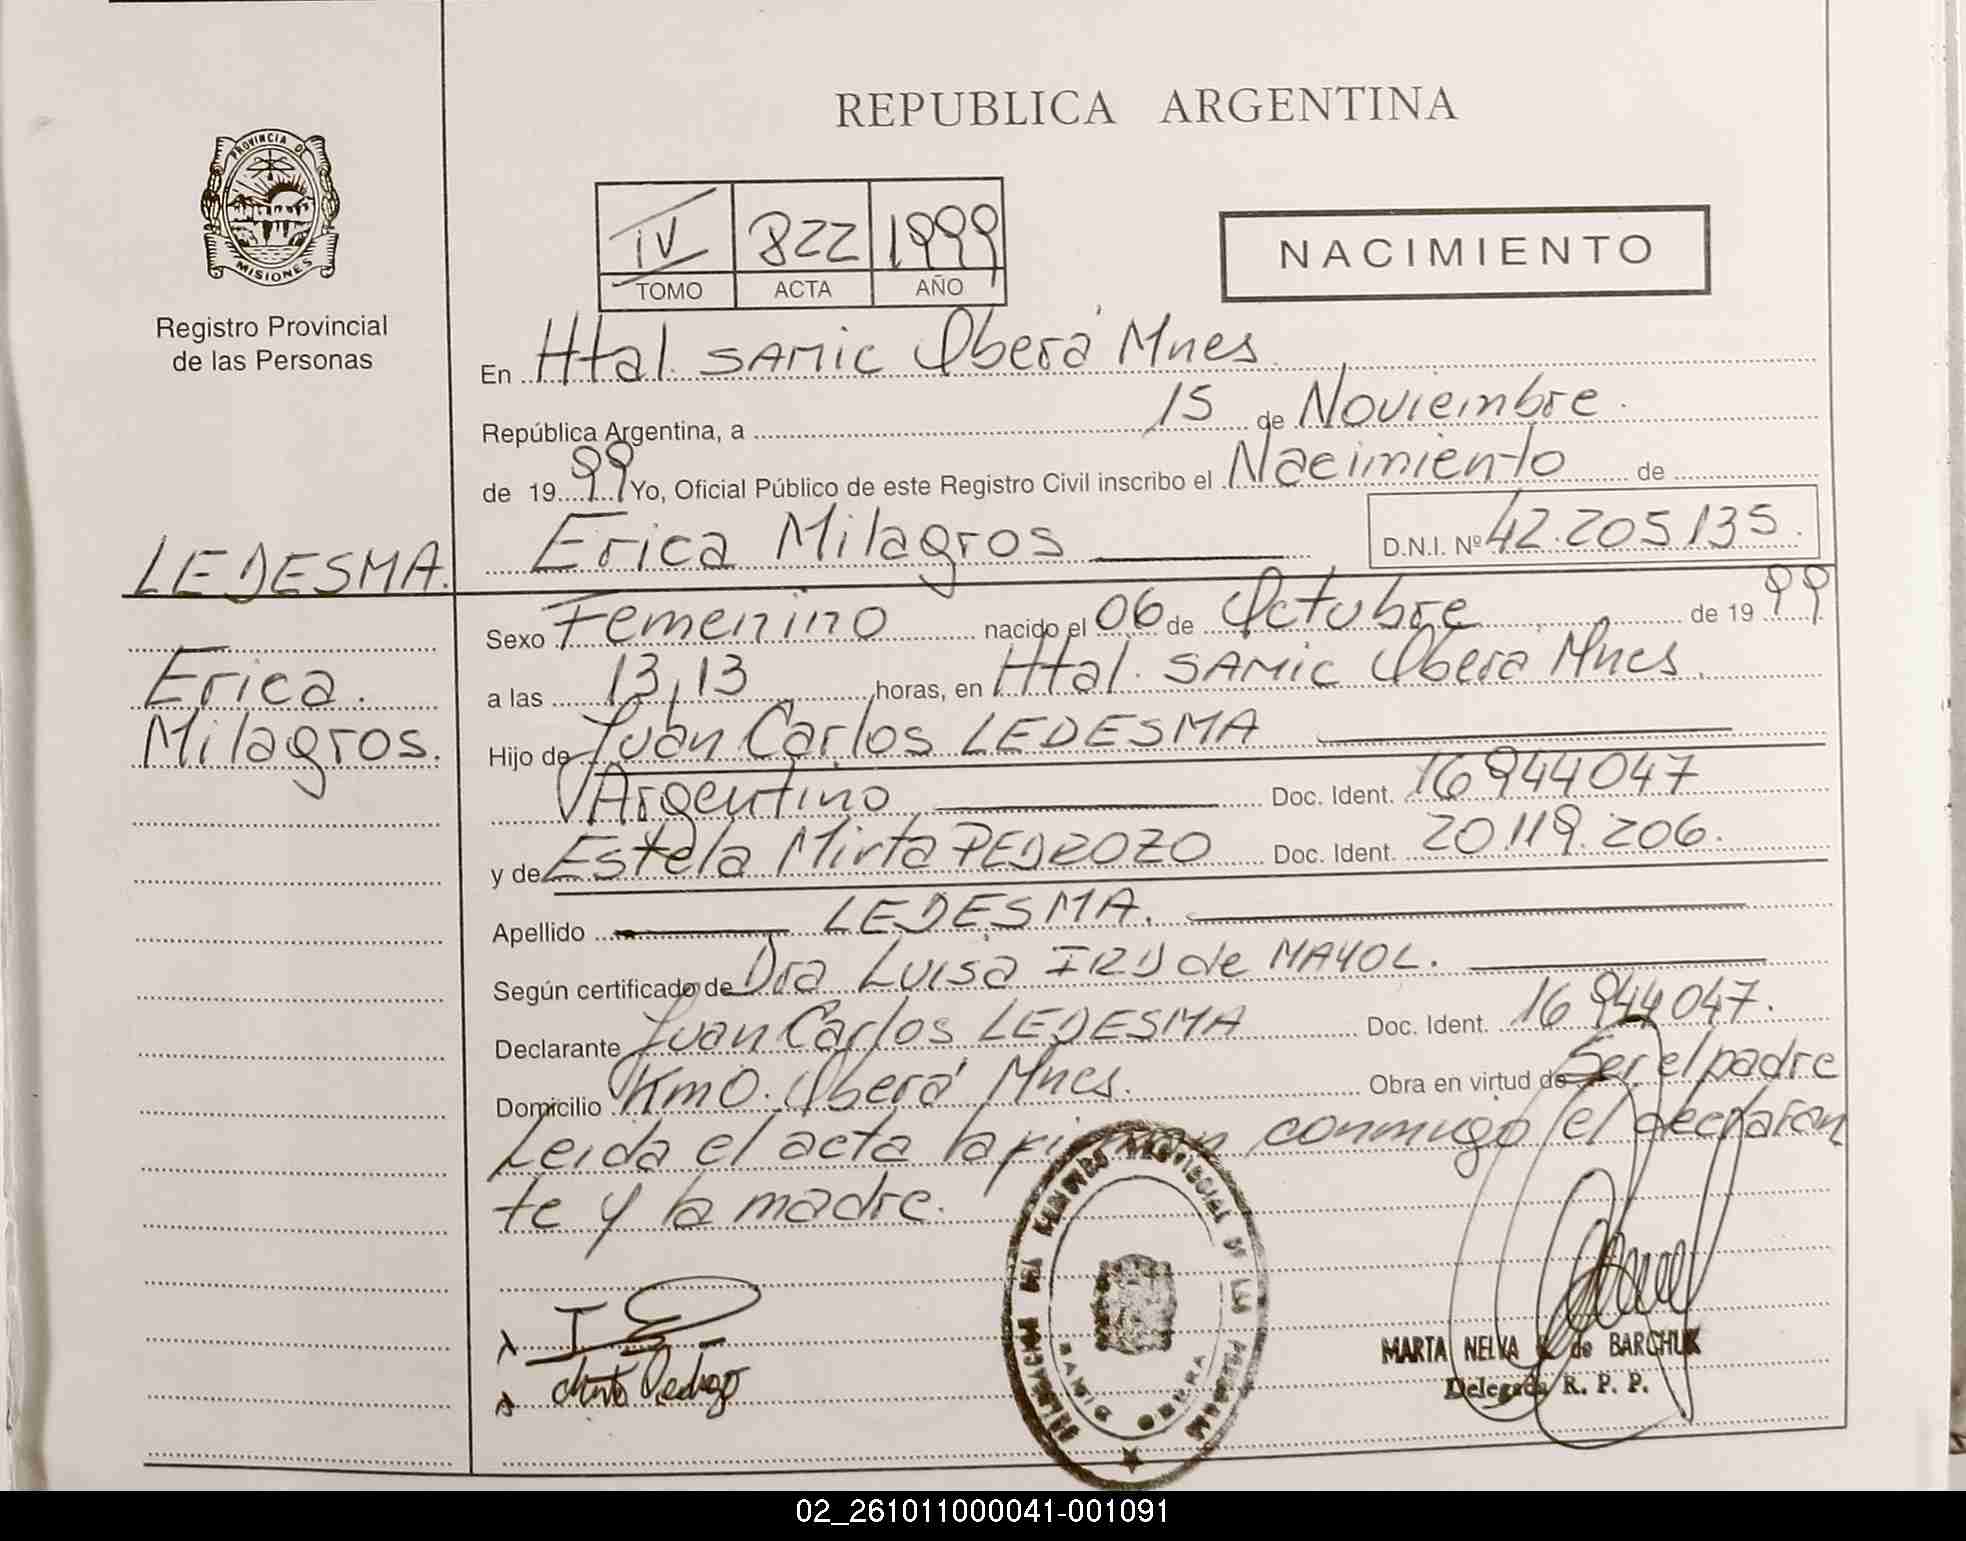 REPUBLICA ARGENTINA
PROVINCIA DE
MISIONES
Registro Provincial
de las Personas
IV 822 1999
TOMO ACTA AÑO
NACIMIENTO
En Htal. SAMIC Oberá Mnes.
República Argentina, a 15 de Noviembre.
de 1999 Yo, Oficial Público de este Registro Civil inscribo el Nacimiento de
Erica Milagros D.N.I. Nº 42.205135.
LEDESMA.
Erica.
Milagros.
Sexo Femenino nacido el 06 de Octubre de 1999
a las 13,13 horas, en Htal. SAMIC Obera Mnes.
Hijo de Juan Carlos LEDESMA
Argentino Doc. Ident. 16944047
y de Estela Mirta PEDROZO Doc. Ident. 20119.206.
Apellido LEDESMA.
Según certificado de Dra Luisa de MAYOL.
Declarante Juan Carlos LEDESMA Doc. Ident. 16944047.
Domicilio Km0. Oberá Mnes. Obra en virtud de Ser el padre
Leida el acta la firman conmigo el declaran
te y la madre.
PROVINCIAL DE LAS PERSONAS
SAMIC OBERA
MARTA NELVA de BARCHUK
Delegada R. P. P.
02_261011000041-001091